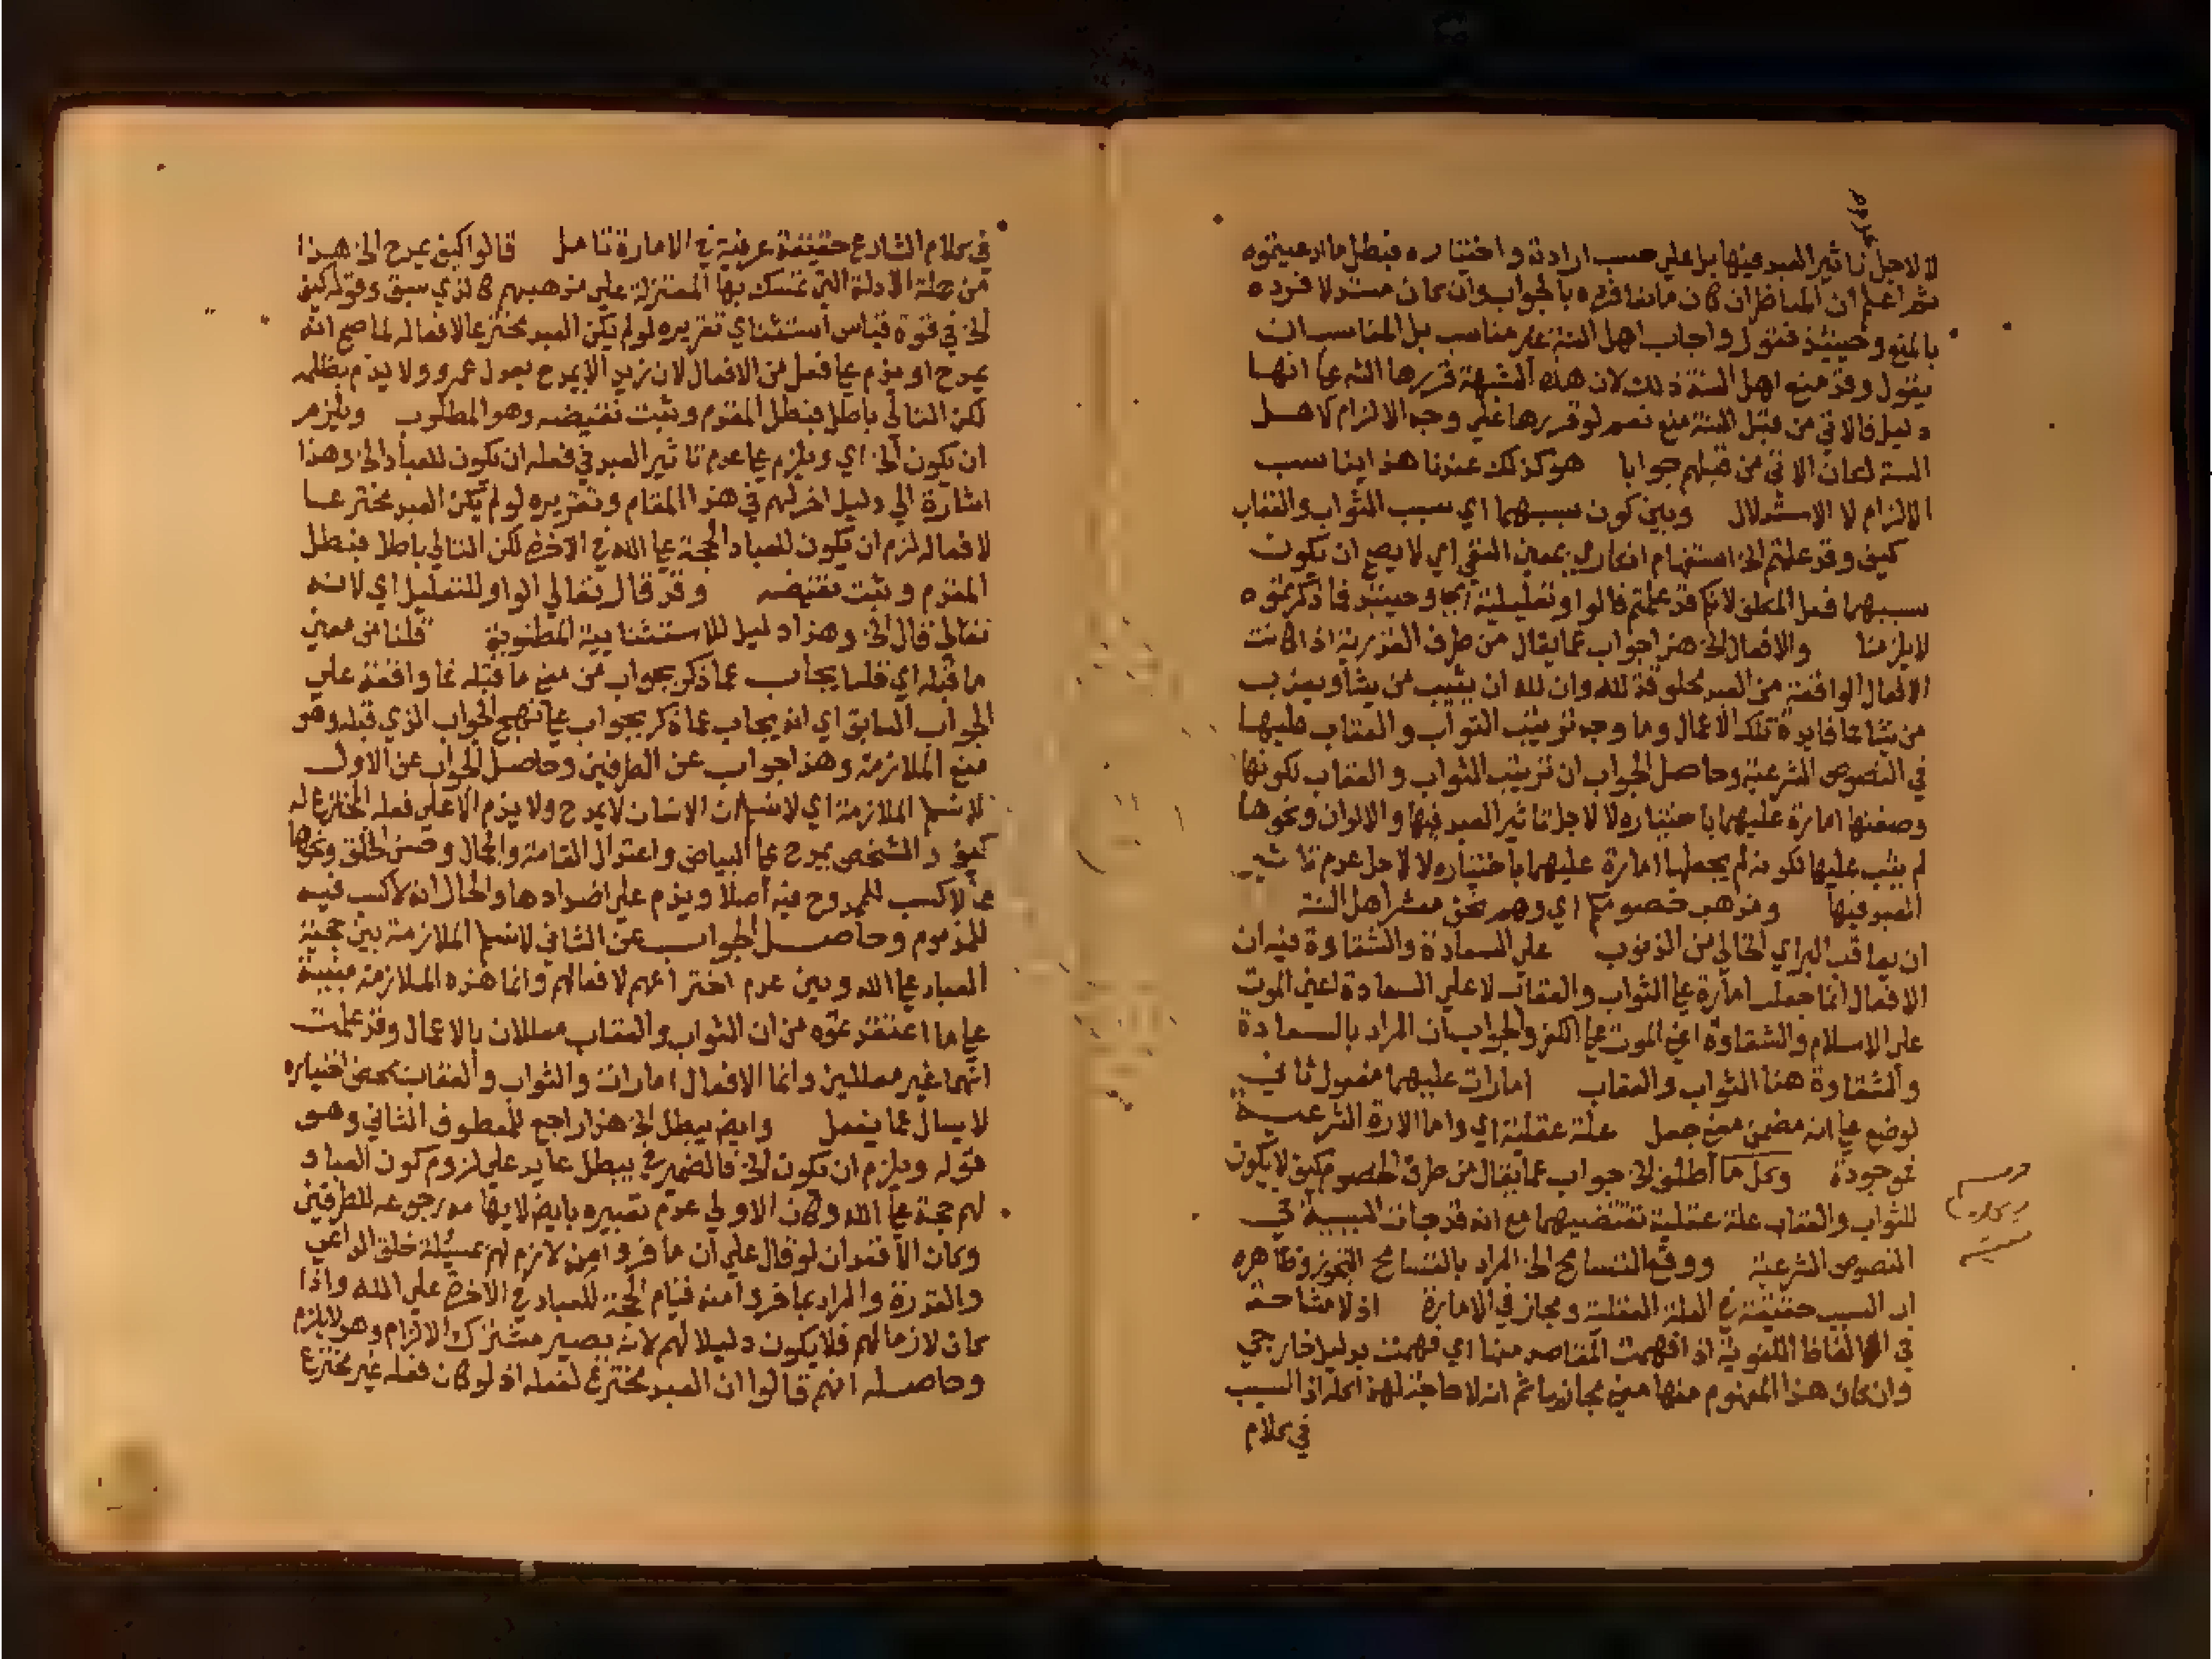 لا لاجل تاثير العبد فيها بل علي حسب ارادته و اختياره فبطل ما ادعيتموه
ثم اعلم ان المناظر ان كان مانعا فرده بالجواب وان كان مستدلا فرده
بالمنع وحينئذ فقول واجاب اهل السنة غير مناسب بل المناسب ان
يقول وقد منع اهل السنة ذلك لان هذه الشبهة قررها الشه علي انها
دليل فالاتي من قبل السنة منع نعم لو قررها علي وجه الالزام لاهل
السنة لكان الاتي من قبلهم جوابا هو كذلك عندنا هذا يناسب
الالزام لا الاستدلال وبين كون سببهما اي سبب الثواب والعقاب
كيف وقد علمتم الخ استفهام انكاري بمعني النفي اي لا يصح ان يكون
سببهما فعل المكلف لانكم قد علمتم فالواو تعليلية وحينئذ فما ذكرتموه
لا يلزمنا والافعال الخ هذا جواب عما يقال من طرف القدرية اذا كانت
الافعال الواقعة من العبد مخلوقة لله وان لله ان يثيب من يشا ويعذب
من يشا فما فايدة تلك الاعمال وما وجه ترتيب الثواب والعقاب عليها
في النصوص الشرعية وحاصل الجواب ان ترتيب الثواب والعقاب لكونها
وصفتها امارة عليهما باختياره لا لاجل تاثير العبد فيها والالوان ونحوها
لم يثب عليها لكونه لم يجعلها امارة عليهما باختياره لا لاجل عدم تاثير
العبد فيها ومذهب خصومكم اي وهم نحن معشر اهل السنة
ان يعاقب البراي الخالي من الذنوب علي السعادة والشقاوة فيه ان
الافعال انما جعلت امارة علي الثواب والعقاب لا علي السعادة اعني الموت
علي الاسلام والشقاوة اعني الموت علي الكفر والجواب ان المراد بالسعادة
والشقاوة هنا الثواب والعقاب امارات عليهما مفعول ثاني
لوضع علي انه مضمن معني جعل علة عقلية اي واما الامارة الشرعية
فموجودة وكل ما اطلق الخ جواب عما يقال من طرف الخصوم كيف لا يكون
للثواب والعقاب علة عقلية تقتضيهما مع انه قد جات السببية في
النصوص الشرعية ووقع التسامح الخ المراد بالتسامح التجوز وظاهره
ان السبب حقيقة في العلة العقلية ومجاز في الامارة اذ لا مشاحة
في الالفاظ اللغوية اذا فهمت المقاصد منها اي فهمت بدليل خارجي
وان كان هذا المفهوم منها معني مجازيا ثم انه لا حاجة لهذا لان السبب
في كلام
في كلام الشارع حقيقة عرفية في الامارة تامل قالوا كيف يمدح الخ هذا
من جملة الادلة التي تمسك بها المعتزلة علي مذهبهم كالذي سبق وقوله كيف
الخ في قوة قياس استثناي تقريره لو لم يكن العبد مخترعا لافعاله لما صح انه
يمدح او يذم علي فعل من الافعال لان زيد الا يمدح بعدل عمرو ولا يذم بظلمه
لكن التالي باطل فبطل المقدم وثبت نقيضه وهو المطلوب ويلزم
ان يكون الخ اي ويلزم علي عدم تاثير العبد في فعله ان يكون للعباد الخ وهذا
اشارة الي دليل اخر لهم في هذا المقام وتقريره لو لم يكن العبد مخترعا
لافعاله لزم ان يكون للعباد الحجة علي الله في الاخرة لكن التالي باطل فبطل
المقدم وثبت نقيضه وقد قال تعالي الواو للتعليل اي لانه
تعالي قال الخ وهذا دليل للاستثنايية المطوية قلنا من معني
ما قبله اي قلنا يجاب عما ذكر بجواب من منع ما قبله لموافقته علي
الجواب السابق اي انه يجاب عما ذكر بجواب علي نهج الجواب الذي قبله وهو
منع الملازمة وهذا جواب عن الطرفين وحاصل الجواب عن الاول
لا نسلم الملازمة اي لا نسلم ان الانسان لا يمدح ولا يذم الا علي فعله المخترع له
كيف والشخص يمدح علي البياض واعتدال القامة والجمال وحسن الخلق ونحوها
مما لا كسب للممدوح فيه اصلا ويذم علي اضدادها والحال انه لا كسب فيه
للمذموم وحاصل الجواب عن الثاني لا نسلم الملازمة بين حجية
العباد علي الله وبين عدم اختراعهم لافعالهم وانما هذه الملازمة مبنية
علي ما اعتقدتموه من ان الثواب والعقاب معللان بالاعمال وقد علمت
انهما غير معللين وانما الافعال امارات والثواب والعقاب بمحض اختياره
لا يسال عما يفعل وايضا يبطل الخ هذا راجع للمعطوف الثاني وهو
قوله ويلزم ان تكون الخ فالضمير في يبطل عايد علي لزوم كون العباد
لهم حجة علي الله وكان الاولي عدم تعبيره بايضا لايهامه رجوعه للطرفين
وكان الاقعد ان لو قال علي ان ما فروا منه لازم لهم بمسئلة خلق الداعي
والقدرة والمراد بما فروا منه قيام الحجة للعباد في الاخرة علي الله واذا
كان لازما لهم فلا يكون دليلا لهم لانه يصير مشترك الالزام وهو لا يلزم
وحاصله انهم قالوا ان العبد مخترع لفعله اذ لو كان فعله غير مخترع